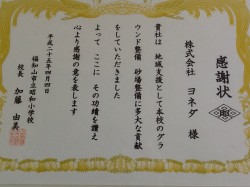 感謝状
株式会社 ヨネダ 様
貴社は 地域支援として本校のグラ
ウンド整備 砂場整備に多大な貢献
をしていただきました
よって ここに その功績を讃え
心より感謝の意を表します
平成二十五年四月四日
福知山市立昭和小学校
校長 加藤 由美